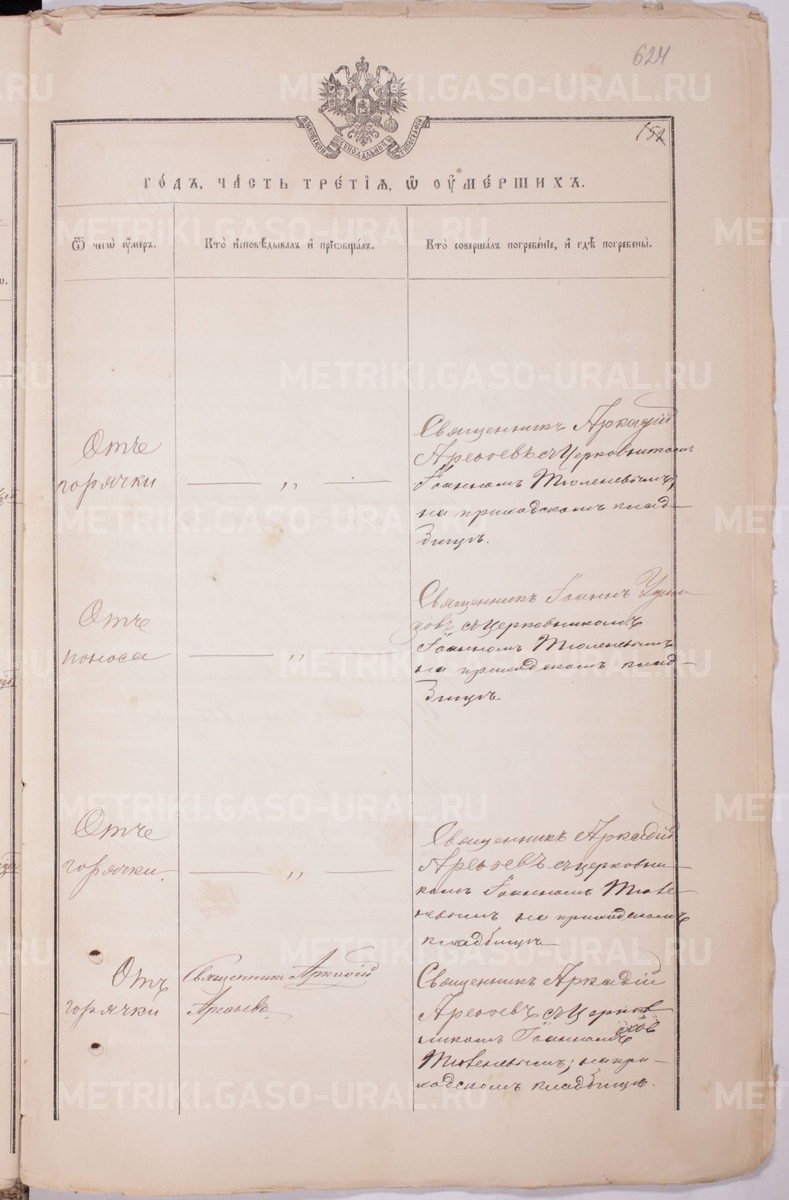 624
151
МОСКОВСКОЙ СѴНОДАЛЬНОЙ ТИПОГРАФІИ
ГОДЪ, ЧАСТЬ ТРЕТІЯ, Ѿ ОУМЕРШИХЪ.
Ѿ чегѡ оумеръ.
Кто исповѣдывалъ и пріобщалъ.
Кто совершалъ погребеніе, и гдѣ погребены.
Отъ
горячки
— „ —
Священникъ Аркадій
съ Церковникомъ
Іоанномъ Тюленевымъ,
на приходскомъ клад-
бищѣ.
Отъ
поноса
— „ —
Священникъ Іоаннъ
съ церковникомъ
Іоанномъ Тюленевымъ
на приходскомъ клад-
бищѣ.
Отъ
горячки.
— „ —
Священникъ Аркадій
съ церковни-
комъ Іоанномъ Тюле-
невымъ на приходскомъ
кладбищѣ
Отъ
горячки
Священникъ Аркадій
Священникъ Аркадій
съ Церков
никомъ Іоанномъ
Тюленевымъ; на при-
ходскомъ кладбищѣ.
METRIKI.GASO-URAL.RU